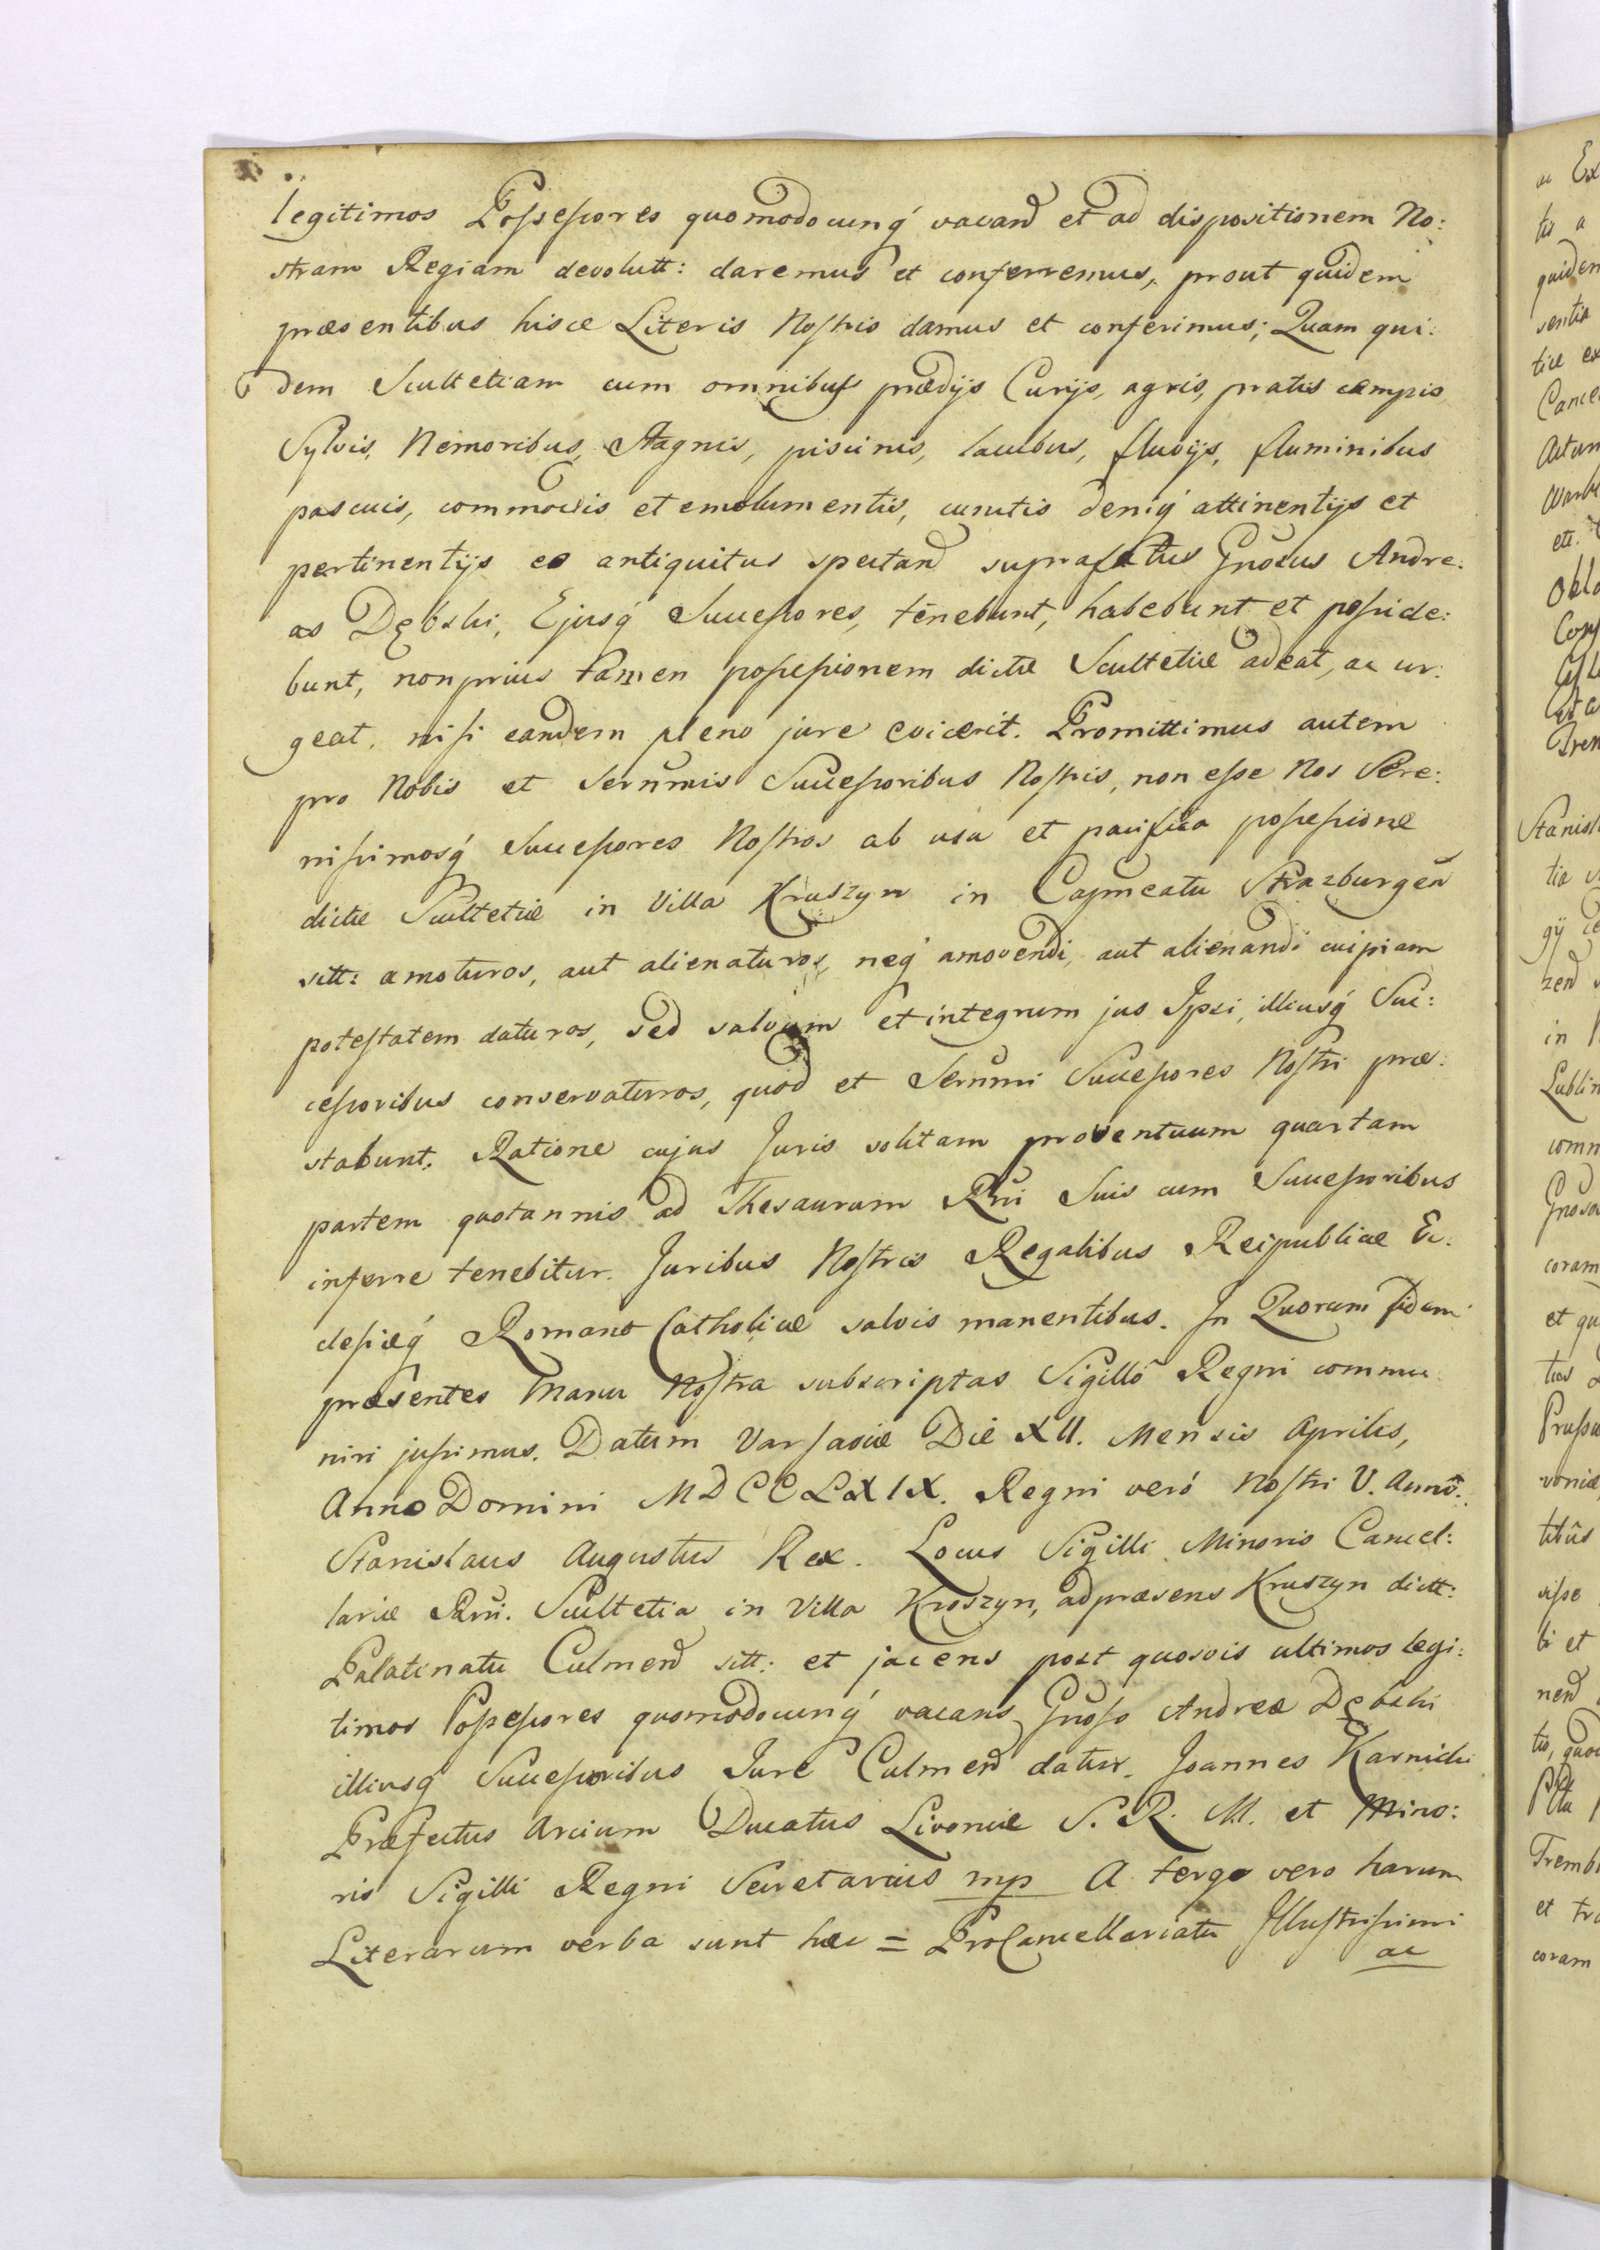 legitimos Possessores quomodocunq́ vacand et ad dispositionem No:
stram Regiam devolutt: daremus et conferremus, prout quidem
præsentibus hisce Literis Nostris damus et conferimus; Quam qui:
dem Scultetiam cum omnibus prædijs Curijs, agris, pratis campis
Sylvis, Nemoribus, Stagnis, piscinis, lacubus, fluvijs, fluminibus
pascuis, commodis et emolumentis, cunctis deniq́ attinentijs et
pertinentijs eo antiquitus spectand suprafatus Gnosus Andre:
as Dębski, Ejusq́ Successores, tenebunt, habebunt et posside:
bunt, non prius tamen possessionem dictæ Scultetiæ adeat, ac ur:
geat, nisi eandem pleno jure evicerit. Promittimus autem
pro Nobis et Sernmis Successoribus Nostris, non esse Nos Sere:
nissimosq́ Successores Nostros ab usu et pacifica possessione
dictæ Scultetiæ in Villa Kruszyn in Capneatu Strazburgen
sitt: amoturos, aut alienaturos, neq́ amovendi, aut alienandi cuipiam
potestatem daturos, sed salvum et integrum jus Ipsi, illiusq́ Suc:
cessoribus conservaturos, quod et Sernmi Successores Nostri præ:
stabunt. Ratione cujus Juris solitam proventuum quartam
partem quotannis ad Thesaurum Rni Suis cum Successoribus
inferre tenebitur. Juribus Nostris Regalibus Reipublicæ Ec:
clesiæq́ Romano Catholicæ salvis manentibus. In Quorum fidem
præsentes Manu Nostra subscriptas Sigillô Regni commu:
niri jussimus. Datum Varsaviæ Die XII. Mensis Aprilis,
Anno Domini MDCCLXIX. Regni veró Nostri V. Annô.
Stanislaus Augustus Rex. Locus Sigilli Minoris Cancel:
lariæ Rni. Scultetia in Villa Kroszyn, ad præsens Kruszyn dictt:
Palatinatu Culmend sitt: et jacens post quosvis ultimos legi:
timos Possessores quomodocunq́ vacans Gnoso Andreæ Dębski
illiusq́ Successoribus Jure Culmend datur. Joannes Karnicki
Præfectus Arcium Ducatus Livoniæ S. R. M. et Mino:
ris Sigilli Regni Secretarius mp A tergo vero harum
Literarum verba sunt hæc = ProCancellariatu Illustrissimi
ac